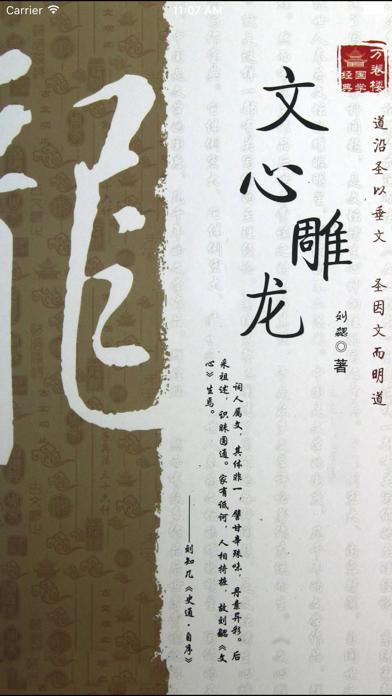 Carrier 11:07 AM
万卷楼
国学
经典
道沿圣以垂文 圣因文而明道
文心雕龙
刘勰◎著
词人属文，其体非一，譬甘辛殊味，丹素异彩。后
来祖述，识昧圆通。家有诋诃，人相掎摭，故刘勰《文
心》生焉。
——刘知几《史通·自序》
龍